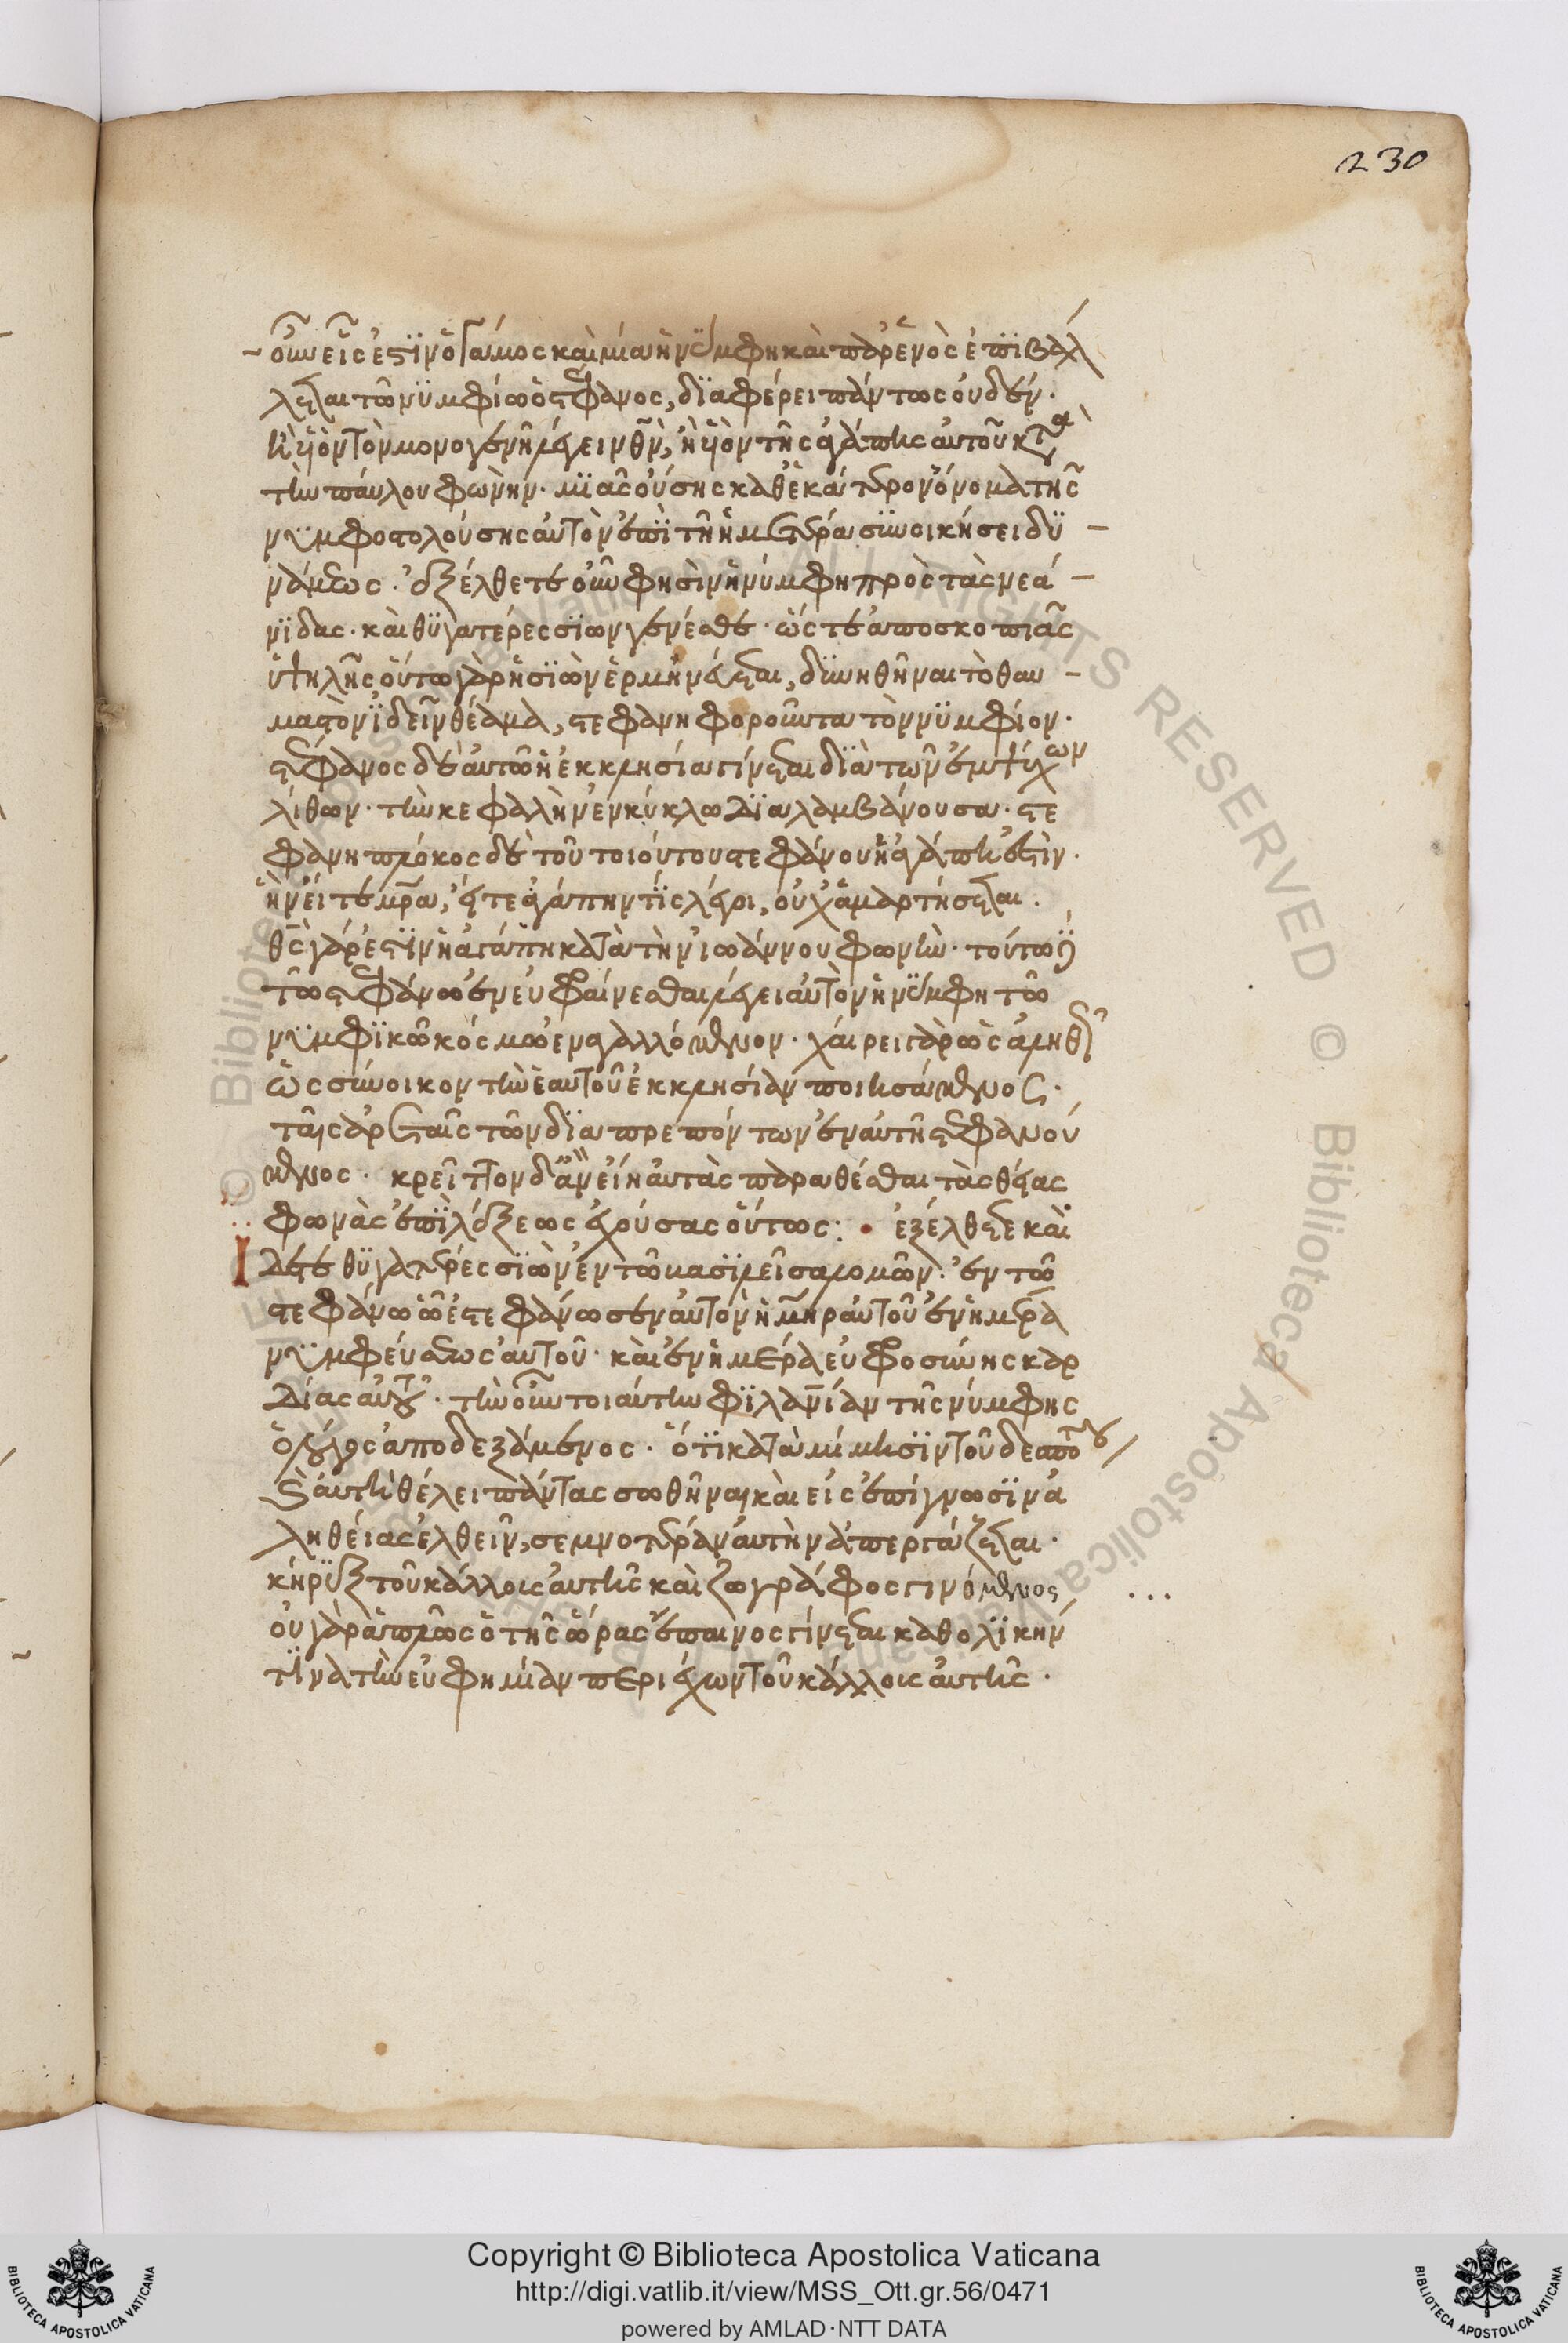 230
οὖν εἷς ἐστϊν ὁ γάμος καὶ μία ἡ νύμφη καὶ παρθένος ἐπϊβάλ
λεται τῶ νϋμφίω ὁ στέφανος, δϊαφέρει πάντως οὐδέν.
ἢ υἱὸν τὸν μονογενῆ λέγειν θῦ, ἢ υἱὸν τῆς ἀγάπης αὐτοῦ κατὰ
τὴν παύλου φωνὴν. μϊᾶς οὔσης καθ' ἑκάτερον ὄνομα τῆς
νϋμφοστολούσης αὐτὸν ἐπὶ τῆ ἡμετέρα συνοικήσει δϋ
νάμεως. ἐξέλθετε οὖν φησὶν ἡ νύμφη πρὸς τὰς νεά
νϊδας. καὶ θϋγατέρες σϊὼν γένεσθε. ὥστε ἀπὸ σκοπιᾶς
ὑψηλῆς οὕτω γὰρ ἡ σϊὼν ἑρμηνεύεται, δϋνηθῆναι τὸ θαυ
μαστὸν ἰδεῖν θέαμα, στεφανηφοροῦντα τὸν νϋμφίον.
στέφανος δὲ αὐτῶ ἡ ἐκκλησία γίνεται δϊὰ τῶν ἐμψύχων
λίθων. τὴν κεφαλὴν ἐν κύκλω δϊαλαμβάνουσα. στε
φανηπλόκος δὲ τοῦ τοιούτου στεφάνου ἡ ἀγάπη ἐστὶν.
ἣν εἴτε μρα, εἴτε ἀγάπην τϊς λέγοι, οὐχ ἁμαρτήσεται.
θς γάρ ἐστϊν ἡ ἀγάπη κατὰ τὴν ἰωάννου φωνὴν. τούτω δὲ
τῶ στεφάνω ἐνευφραίνεσθαι λέγει αὐτὸν ἡ νύμφη τῶ
νϋμφϊκῶ κόσμω ἐναγαλλόμενον. χαίρει γὰρ ὡς ἀληθῶς
ὡς σύνοικον τὴν ἑαυτοῦ ἐκκλησίαν ποιησάμενος.
ταῖς ἀρεταῖς τῶν δϊαπρεπόντων ἐν αὐτῆ στεφανού
μενος. κρεῖττον δ' ἂν εἴη αὐτὰς παραθέσθαι τὰς θείας
φωνὰς ἐπὶ λέξεως ἐχούσας οὕτως: ἐξέλθετε καὶ
ἴδετε θϋγατέρες σϊὼν ἐν τῶ βασϊλεῖ σαλομῶν. ἐν τῶ
στεφάνω ὧ ἐστεφάνωσεν αὐτὸν ἡ μηρ αὐτοῦ ἐν ἡμέρα
νϋμφεύσεως αὐτοῦ. καὶ ἐν ἡμέρα εὐφροσύνης καρ
δίας αὐτοῦ. τὴν οὖν τοιαύτην φϊλανίαν τῆς νύμφης
ὁ λόγος ἀποδεξάμενος. ὅτϊ κατὰ μίμησϊν τοῦ δεσπότου
καὶ αὐτὴ θέλει πάντας σωθῆναι καὶ εἰς ἐπίγνωσϊν ἀ
ληθείας ἐλθεῖν, σεμνοτέραν αὐτὴν ἀπεργάζεται.
κήρϋξ τοῦ κάλλους αὐτῆς καὶ ζωγράφος γινόμενος
οὐ γὰρ ἁπλῶς ὁ τῆς ὥρας ἔπαινος γίνεται καθολϊκήν
τϊνα τὴν εὐφημίαν περιέχων τοῦ κάλλους αὐτῆς.
Copyright © Biblioteca Apostolica Vaticana
http://digi.vatlib.it/view/MSS_Ott.gr.56/0471
powered by AMLAD·NTT DATA